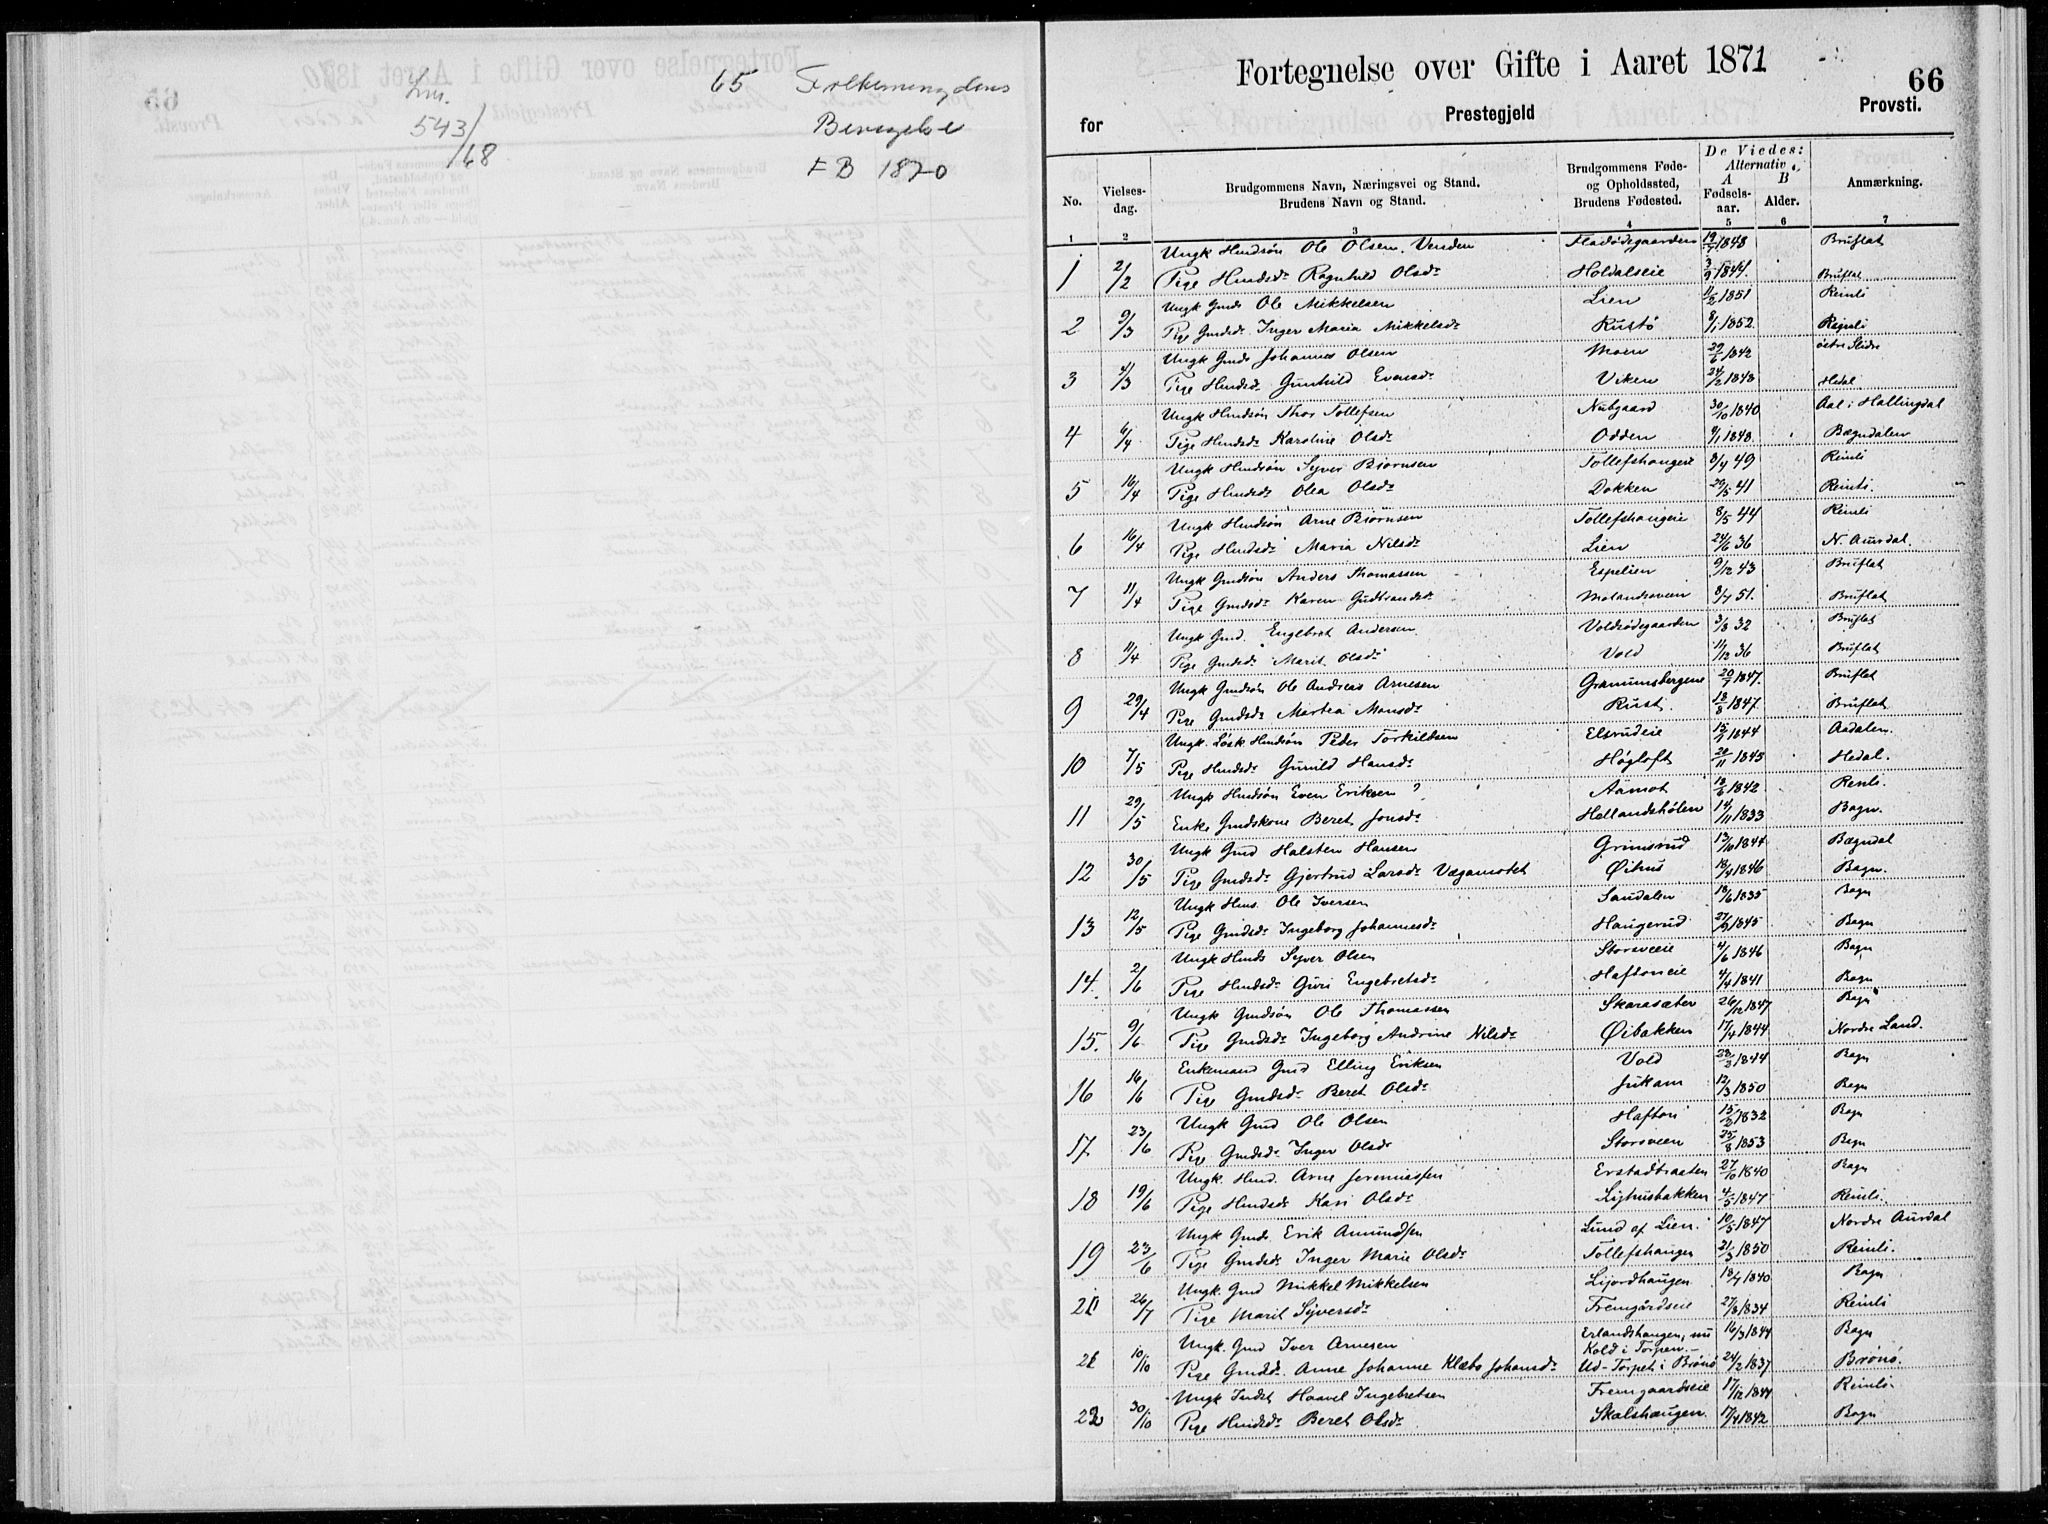 Lnr. 65 Folkemengdens
543/68 Bevegelse
FB 1870
Fortegnelse over Gifte i Aaret 1871
66
for Prestegjeld Provsti.
No. Vielsesdag. Brudgommens Navn, Næringsvei og Stand. Brudens Navn og Stand. Brudgommens Føde- og Opholdssted, Brudens Fødested. De Viedes: Alternativ A Fødselsaar. B Alder. Anmærkning.
1 2 3 4 5 6 7
Ungk Hmdsøn Ole Olsen Venden Fladødegaarden 19/7 1848 Bruflat
1 2/2 Pige Hmdsdr Ragnhild Olsdr Holdalseie 3/9 1844. Bruflat
Ungk Gmds Ole Mikkelsen Lien 11/2 1851 Reinli
2 9/3 Pige Gmdsdr Inger Maria Mikkelsdr Rustø 8/1 1852. Reinli
Ungk Gmds Johannes Olsen Moen 29/6 1842 østre Slidre
3 4/3 Pige Hmdsdr Gunhild Evensdr Viken 24/2 1848 Hedal
Ungk Hmdsøn Thor Tollefsen Nubgaard 30/10 1840 Aal i Hallingdal
4 6/4 Pige Hmdsdr Karoline Olsdr Odden 9/1 1848. Bægndalen
Ungk Hmdsøn Syver Biørnsen Tollefshaugeie 8/4 49 Reinli
5 16/4 Pige Hmdsdr Olea Olsdr Dokken 29/5 41 Reinli.
Ungk Hmdsøn Arne Biørnsen Tollefshaugeie 8/5 44 Reinli
6 16/4 Pige Hmdsdr Maria Nilsdr Lien 24/6 36 N. Aurdal.
Ungk Gmdsøn Anders Thomassen Espelien 9/12 43 Bruflat
7 11/4 Pige Gmdsdr Karen Gudbrandsdr Molandsveen 8/4 51. Bruflat
Ungk Gmd. Engebret Andersen Voldsødegaarden 3/8 32 Bruflat
8 11/4 Pige Gmdsdr Marit Olsdr Vold 11/12 36 Bruflat
Ungk Gmdsøn Ole Andreas Arnesen Gramumsbergene 20/7 1847. Bruflat
9 29/4 Pige Gmdsdr Martea Monsdr Rust. 18/8 1847 Bruflat
Ungk. Løsk Hmdsøn Peder Torkildsen Elsrudeie 15/1 1844 Aadalen.
10 7/5 Pige Hmdsdr Gunild Hansdr Høgloft 20/11 1845 Hedal.
Ungk Hmdsøn Even Eriksen ? Aamot 18/6 1842 Reinli.
11 29/5 Enke Gmdskone Beret Jonsdr Hellandshølen 14/11 1833 Bagn.
Ungk Gmd Halsten Hansen Grimsrud 13/10 1844 Bægndal
12 30/5 Pige Gmdsdr Gjertrud Larsdr Vægamotet Øihus 18/4 1846 Bagn.
Ungk Hms. Ole Iversen Sandalen 18/6 1835 Bagn
13 12/5 Pige Gmdsdr Ingeborg Johannesdr Haugerud 27/9 1845 Bagn
Ungk Hmds Syver Olsen Storsveeie 4/6 1846 Bagn
14. 2/6 Pige Hmdsdr Guri Engebretsdr Haftoneie 4/4 1841 Bagn
Ungk Gmdsøn Ole Thomassen Skarasæter 26/12 1847 Bagn
15. 9/6 Pige Gmdsdr Ingeborg Andrine Nilsdr Øibakken 17/4 1844 Nordre Land.
Enkemand Gmd Elling Eriksen Vold 28/2 1844 Bagn
16 16/6 Pige Gmdsdr Beret Olsdr Jukam 12/3 1850 Bagn
Ungk Gmd Ole Olsen Hafton 15/2 1832 Bagn
17 23/6 Pige Gmdsdr Inger Olsdr Storsveen 25/8 1853 Bagn
Ungk. Hmd. Arne Jeremiassen Erstadbraaten 27/10 1840 Bagn
18 19/6 Pige Hmdsdr Kari Olsdr Lighusbakken 4/5 1847 Reinli.
Ungk Gmds. Erik Amundsen Lund af Lien. 10/5 1847 Nordre Aurdal
19 23/6 Pige Gmdsdr Inger Marie Olsdr Tollefshaugen 21/3 1850 Reinli.
Ungk. Gmd Mikkel Mikkelsen Lijordhaugen 18/4 1840 Bagn
21 26/7 Pige Marit Syversdr Fremgårdseie 27/8 1834 Reinli
Ungk. Gmd Iver Arnesen Erlandshaugen, nu Kold i Torpen. 16/3 1844 Bagn
21 10/10 Pige Gmdsdr. Anne Johanne Klæbo Johansdr Ud-Torpet i Brønø 24/2 1837 Brønø.
Ungk Indst Haavel Ingebretsen Fremgaardseie 17/12 1844 Reinli
22 30/10 Pige Hmdsdr Beret Olsdr Skalshaugen. 17/4 1842 Bagn